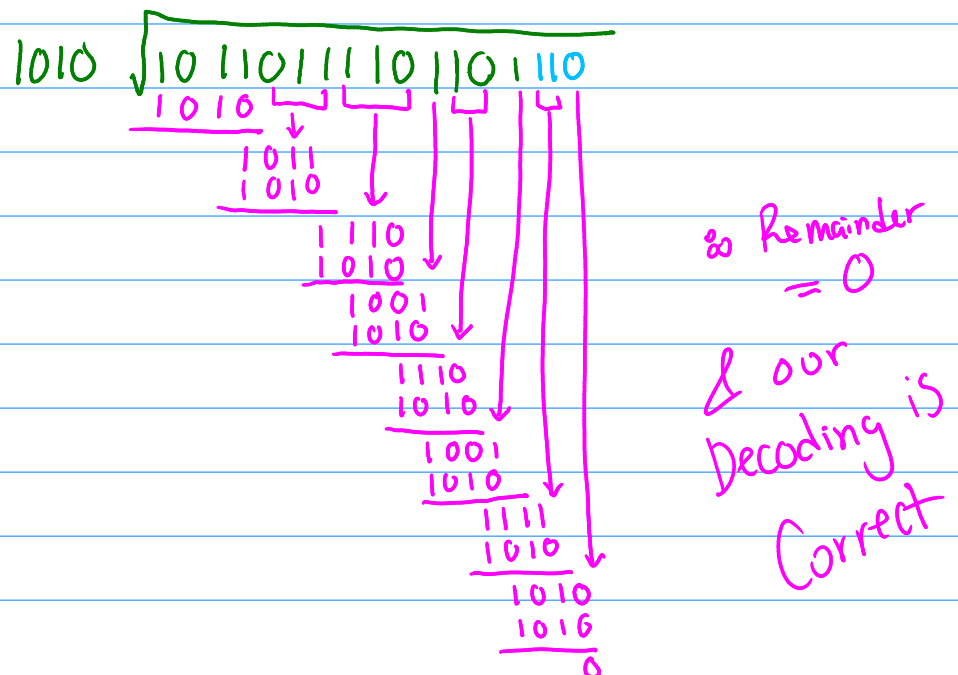 1010 √10110111101101110
1010
1011
1010
1110
1010
1001
1010
1110
1010
1001
1010
1111
1010
1010
1010
0
∴ Remainder
= 0
& our
Decoding is
Correct